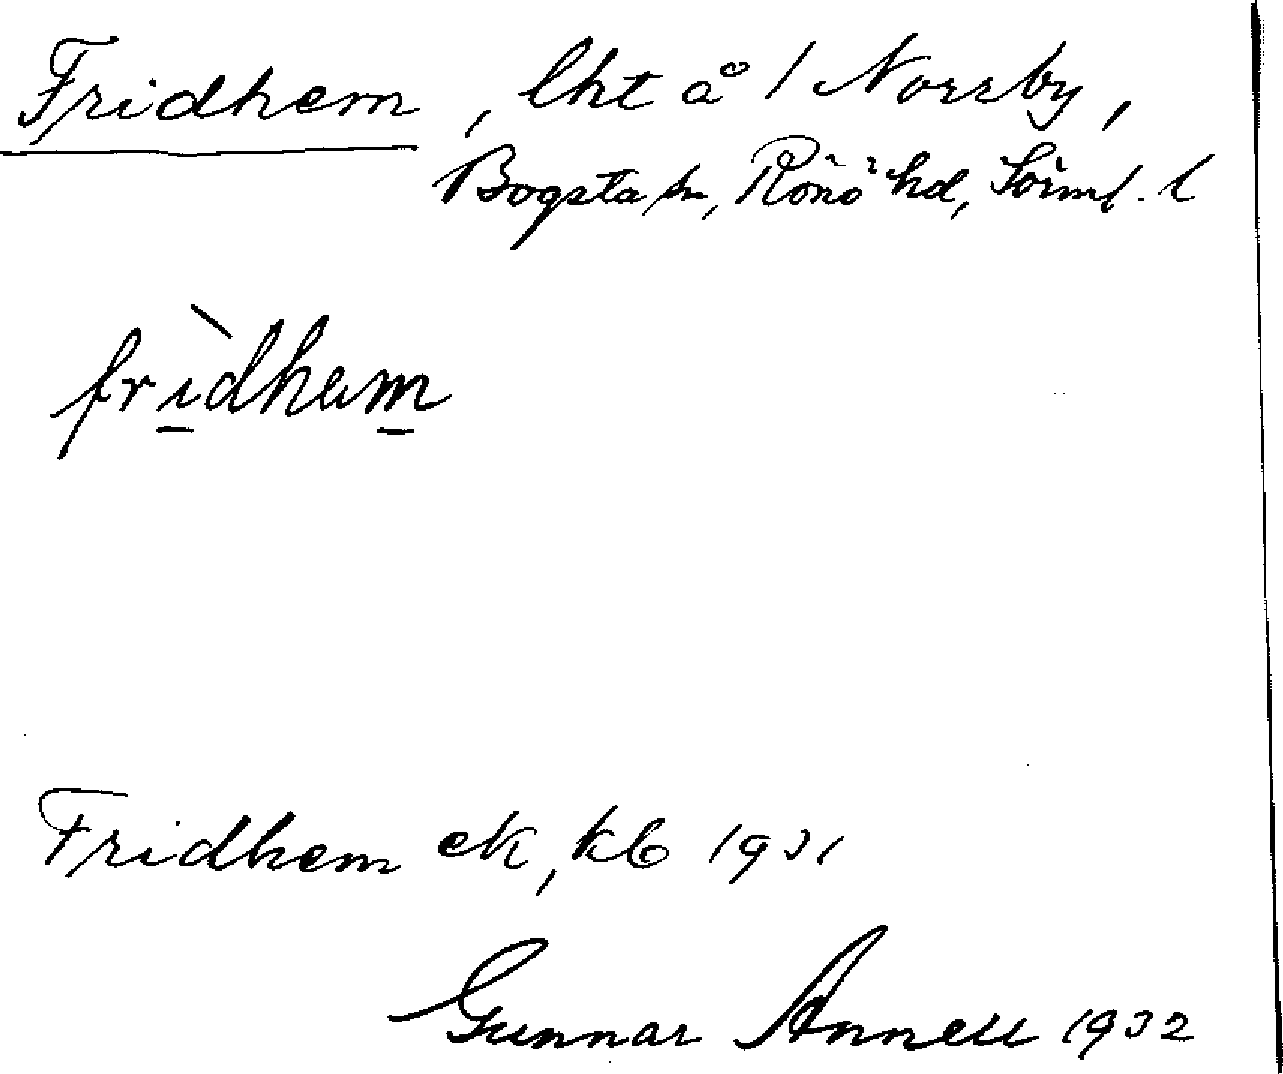 Fridhem, lht å / Norrby,
Bogsta sn, Rönö hd, Sörml. l
frì̲dhem̲
Fridhem ek, kb 1931
Gunnar Annell 1932